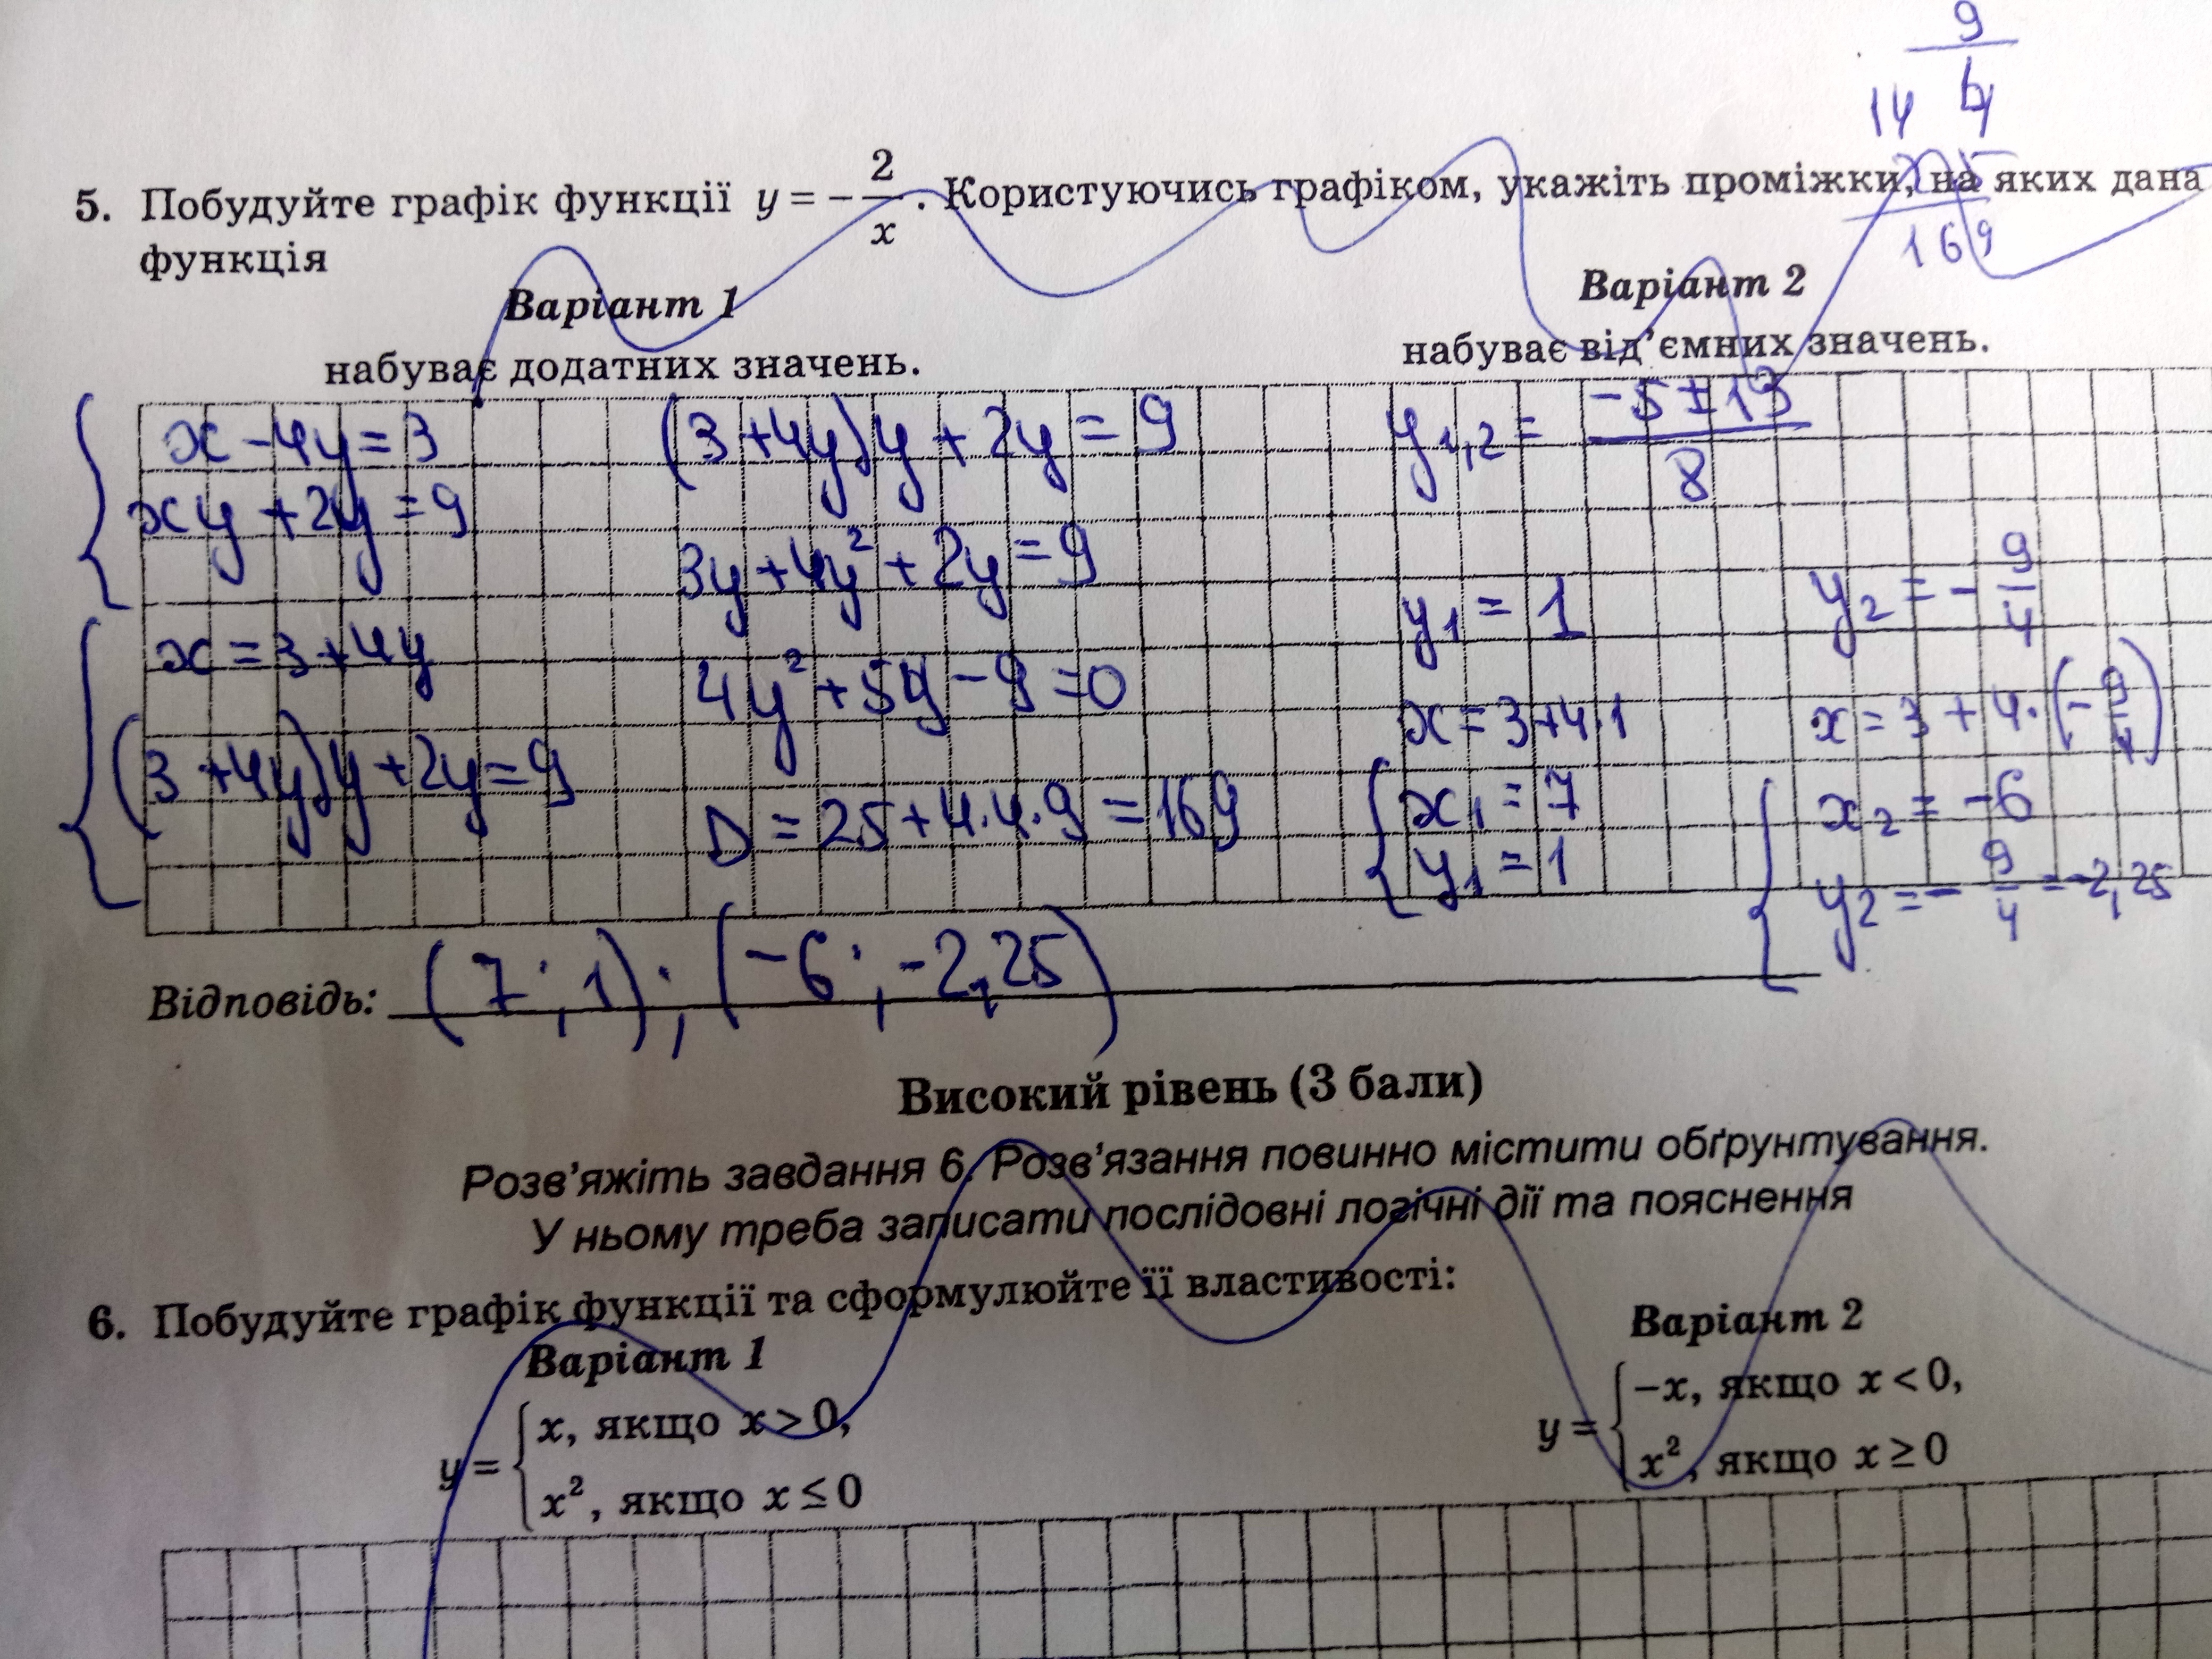 9
14 4
225
169
5. Побудуйте графік функції y = -2/x. Користуючись графіком, укажіть проміжки, на яких дана
функція
Варіант 1
набуває додатних значень.
Варіант 2
набуває від’ємних значень.
x - 4y = 3
xy + 2y = 9
x = 3 + 4y
(3 + 4y)y + 2y = 9
(3 + 4y)y + 2y = 9
3y + 4y² + 2y = 9
4y² + 5y - 9 = 0
D = 25 + 4·4·9 = 169
y1,2 = (-5 ± 13)/8
y1 = 1
x = 3 + 4·1
x1 = 7
y1 = 1
y2 = -9/4
x = 3 + 4·(-9/4)
x2 = -6
y2 = -9/4 = -2,25
Відповідь: (7; 1); (-6; -2,25)
Високий рівень (3 бали)
Розв’яжіть завдання 6. Розв’язання повинно містити обґрунтування.
У ньому треба записати послідовні логічні дії та пояснення
6. Побудуйте графік функції та сформулюйте її властивості:
Варіант 1
y = { x, якщо x > 0,
x², якщо x ≤ 0
Варіант 2
y = { -x, якщо x < 0,
x², якщо x ≥ 0